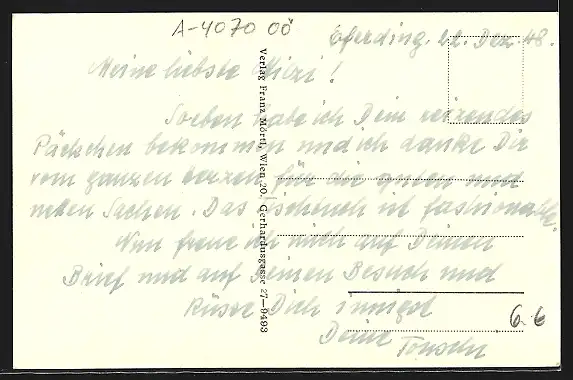 A-4070 OÖ
Eferding, 22. Dez. 48.
Meine liebste Mitzi!
Soeben habe ich Dein reizendes
Päckchen bekommen und ich danke Dir
vom ganzen Herzen für die guten und
netten Sachen. Das ist fashionable.
Nun freue ich mich auf Deinen
Brief und auf Deinen Besuch und
küsse Dich innigst
Deine
Verlag Franz Mörtl, Wien 20, Gerhardusgasse 27-9493
6.6